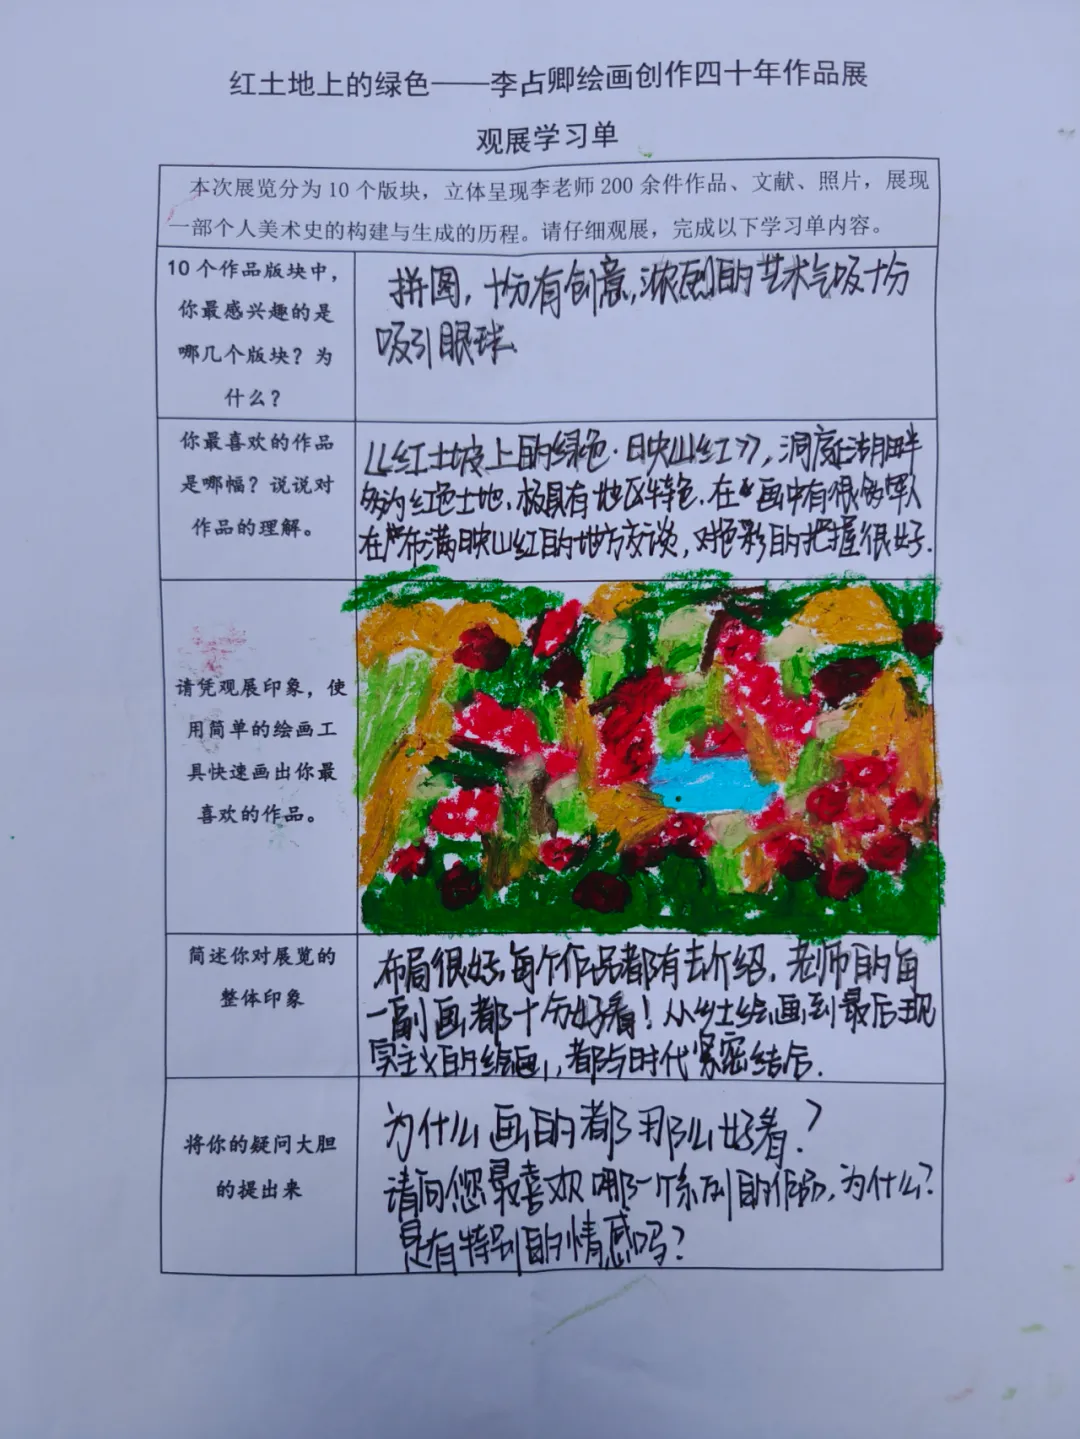 红土地上的绿色——李占卿绘画创作四十年作品展
观展学习单
本次展览分为 10 个版块，立体呈现李老师 200 余件作品、文献、照片，展现
一部个人美术史的构建与生成的历程。请仔细观展，完成以下学习单内容。
10 个作品版块中，
你最感兴趣的是
哪几个版块？为
什么？
拼图，十分有创意，浓烈的艺术气吸十分
吸引眼球.
你最喜欢的作品
是哪幅？说说对
作品的理解。
《红土坡上的绿色·日映山红》，洞庭湖畔
多为红色土地、极具有地区特色. 在画中有很多
在布满日映山红的地方交谈，对色彩的把握很好.
请凭观展印象，使
用简单的绘画工
具快速画出你最
喜欢的作品。
简述你对展览的
整体印象
布局很好，每个作品都有去介绍，老师的每
一副画都十分好看！从乡土绘画到最后现
实主义的绘画，都与时代紧密结合.
将你的疑问大胆
的提出来
为什么画的都那么好看？
请问您最喜欢哪一个系列的作品，为什么？
是有特别的情感吗？